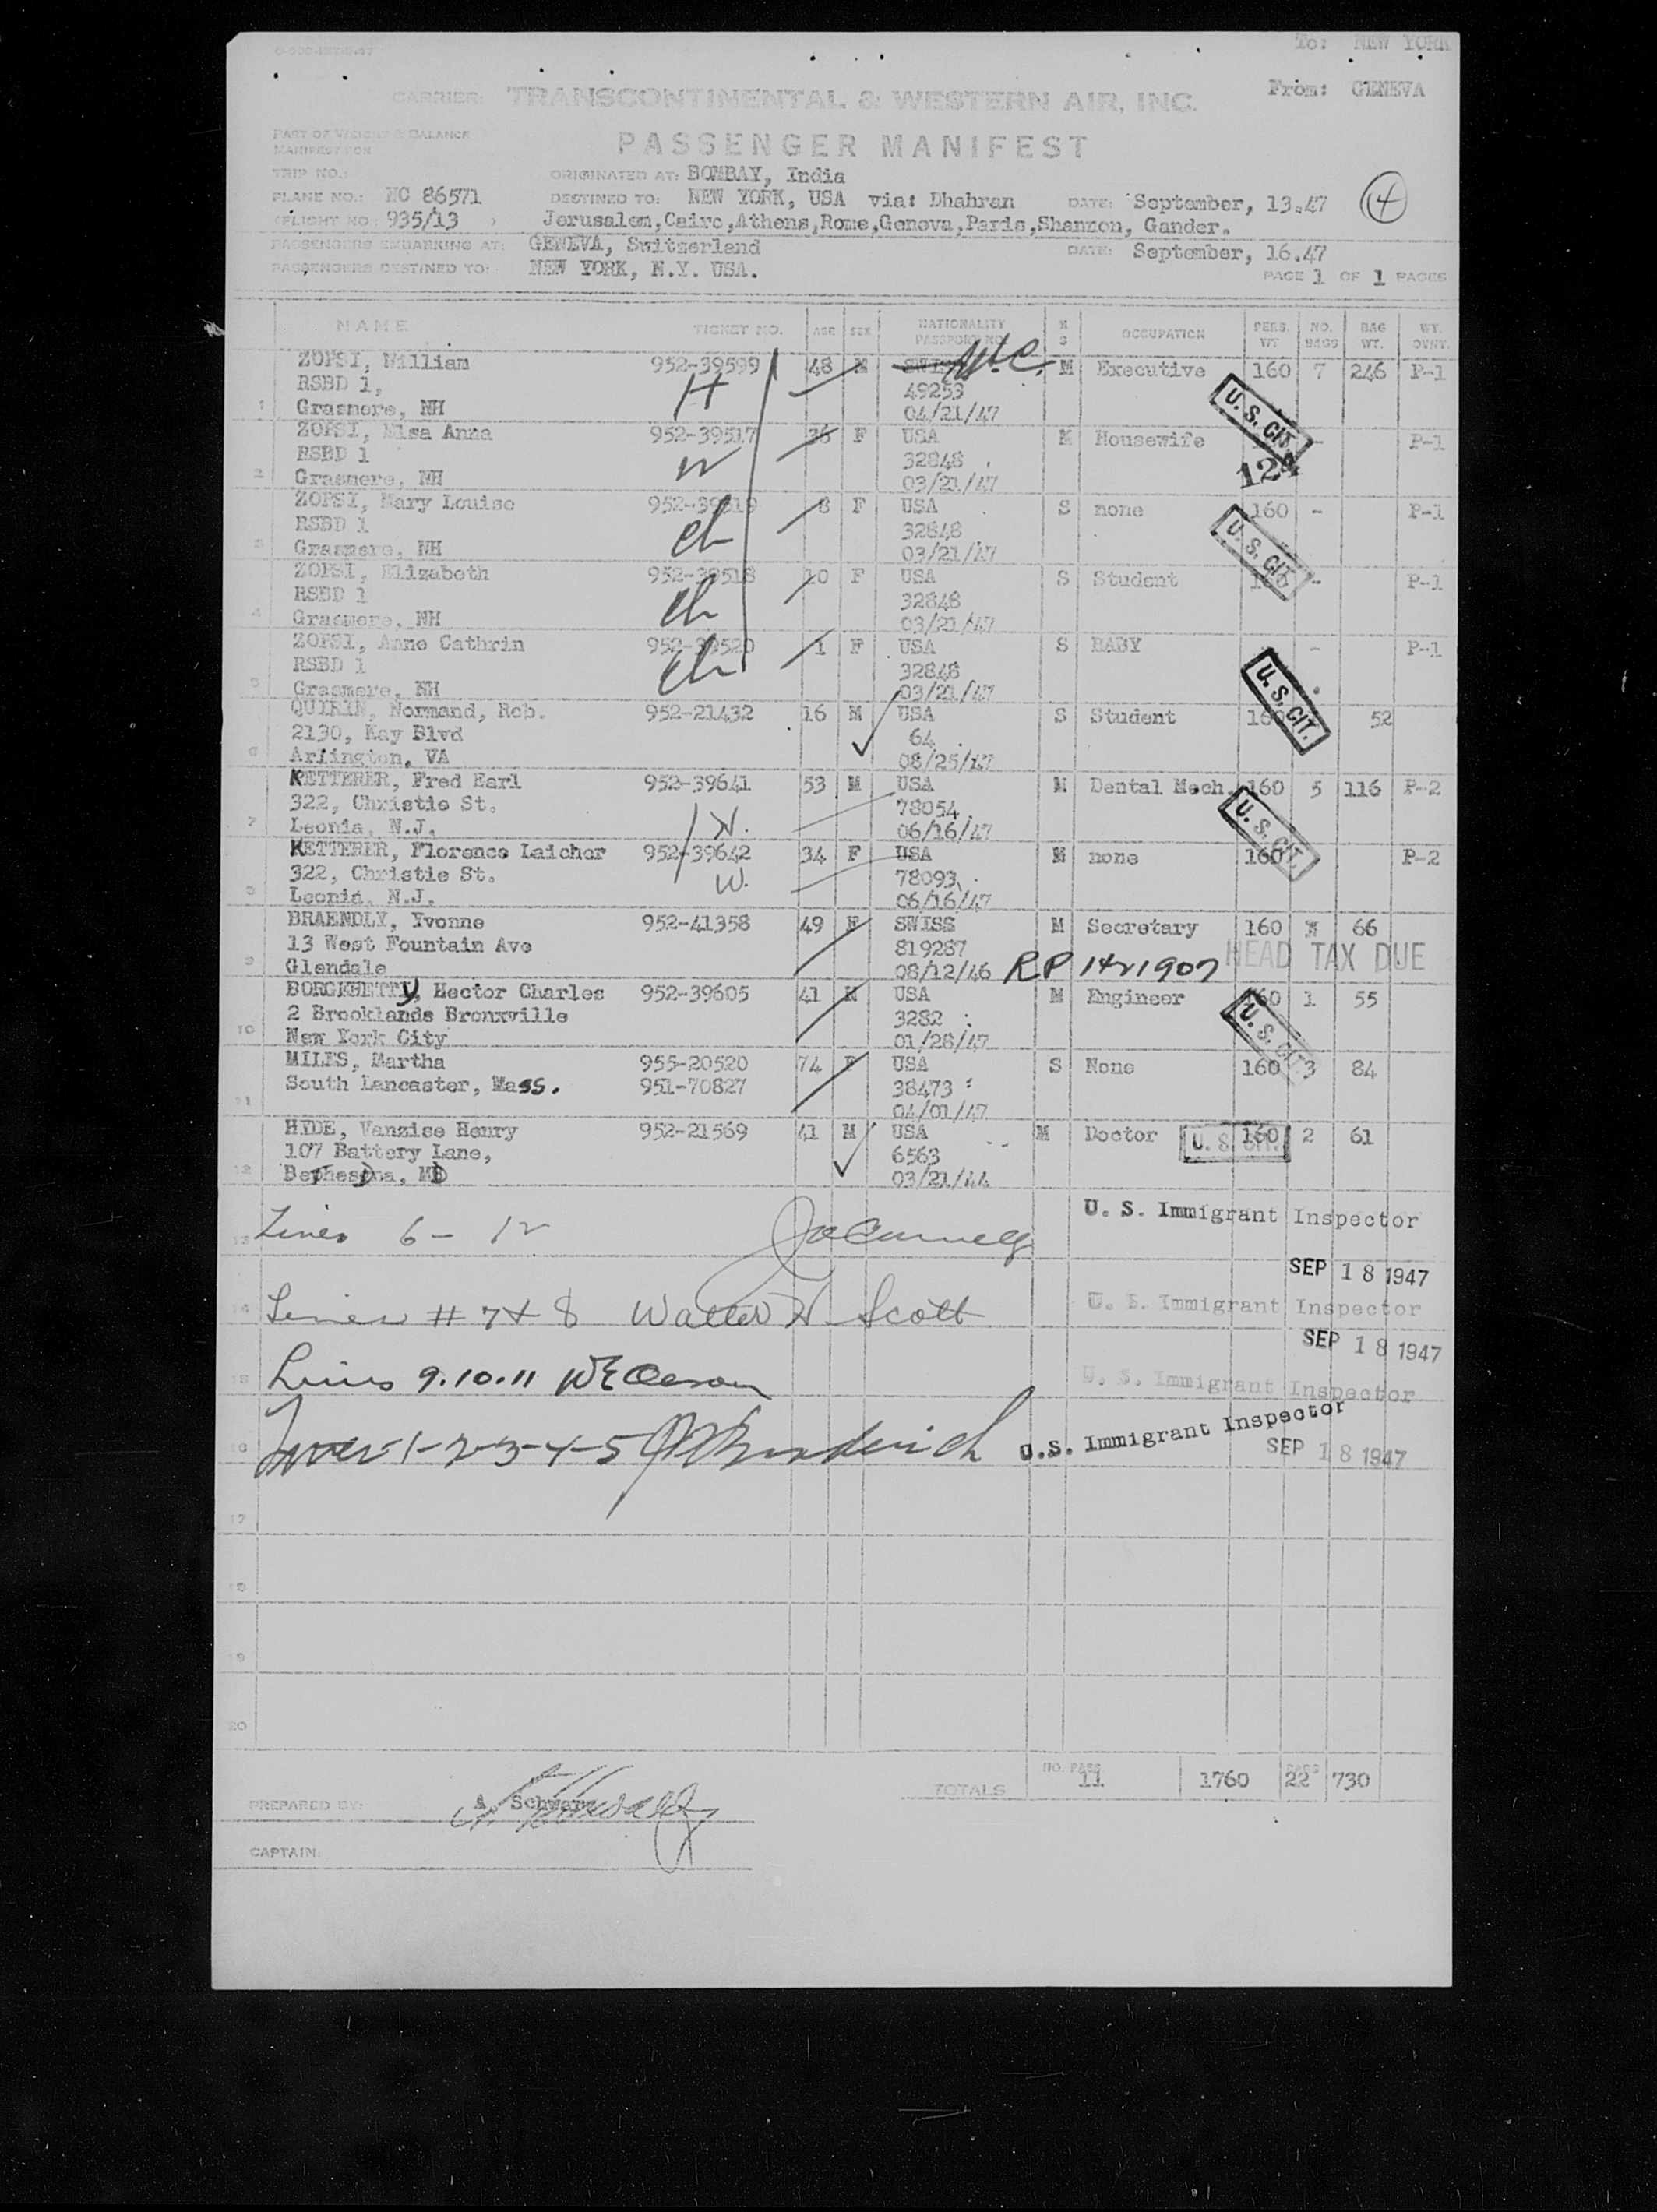 To: NEW YORK
From: GENEVA
CARRIER: TRANSCONTINENTAL & WESTERN AIR, INC.
PART OF WEIGHT & BALANCE
MANIFEST FOR
PASSENGER MANIFEST
TRIP NO.: ORIGINATED AT: BOMBAY, India
PLANE NO.: NC 86571 DESTINED TO: NEW YORK, USA via: Dhahran DATE: September, 13.47 4
(FLIGHT NO. 935/13 ) Jerusalem,Cairo,Athens,Rome,Geneva,Paris,Shannon, Gander.
PASSENGERS EMBARKING AT: GENEVA, Switzerland DATE: September, 16.47
PASSENGERS DESTINED TO: NEW YORK, N.Y. USA. PAGE 1 OF 1 PAGES
NAME TICKET NO. AGE SEX NATIONALITY PASSPORT NO. M S OCCUPATION PERS. WT NO. BAGS BAG WT. WT. OVNT.
ZOPSI, William 952-39599 48 M M Executive 160 7 246 P-1
RSBD 1, H 49253
1 Grasmere, NH 04/21/47 U. S. CIT.
ZOPSI, Elsa Anna 952-39517 36 F USA M Housewife - P-1
RSBD 1 W 32848
2 Grasmere, NH 03/21/47 124
ZOPSI, Mary Louise 952-39519 8 F USA S none 160 - P-1
RSBD 1 ch 32848
3 Grasmere, NH 03/21/47 U. S. CIT.
ZOPSI, Elizabeth 952-39518 10 F USA S Student - P-1
RSBD 1 ch 32848
4 Grasmere, NH 03/21/47
ZOPSI, Anne Cathrin 952-39520 1 F USA S BABY - P-1
RSBD 1 ch 32848
5 Grasmere, NH 03/21/47 U. S. CIT.
QUIRIN, Normand, Rob. 952-21432 16 M USA S Student 160 52
2130, Kay Blvd 64
6 Arlington, VA 08/25/47
KETTERER, Fred Earl 952-39641 53 M USA M Dental Mech. 160 5 116 P-2
322, Christie St. 78054
7 Leonia, N.J. H. 06/16/47 U. S. CIT.
KETTERER, Florence Laicher 952-39642 34 F USA M none 160 P-2
322, Christie St. W. 78093
8 Leonia, N.J. 06/16/47
BRAENDLY, Yvonne 952-41358 49 F SWISS M Secretary 160 66
13 West Fountain Ave 819287 HEAD TAX DUE
9 Glendale 08/12/46 RP 1421907
BORGKHETTY, Hector Charles 952-39605 41 M USA M Engineer 160 1 55
2 Brooklands Bronxville 3282
10 New York City 01/28/47 U. S. CIT.
MILES, Martha 955-20520 74 F USA S None 160 3 84
South Lancaster, Mass. 951-70827 38473
11 04/01/47
HYDE, Vanzise Henry 952-21569 41 M USA M Doctor 160 2 61
107 Battery Lane, 6563 U. S. CIT.
12 Bethesda, MD 03/21/44
U. S. Immigrant Inspector
13 Lines 6 - 12
SEP 18 1947
14 Lines # 7 & 8 Walter H Scott U. S. Immigrant Inspector
SEP 18 1947
15 Lines 9.10.11 U. S. Immigrant Inspector
16 Lines 1-2-3-4-5 U.S. Immigrant Inspector
SEP 18 1947
17
18
19
20
TOTALS NO. PASS 11 1760 BAGS 22 730
PREPARED BY: A. Schwarz
CAPTAIN: